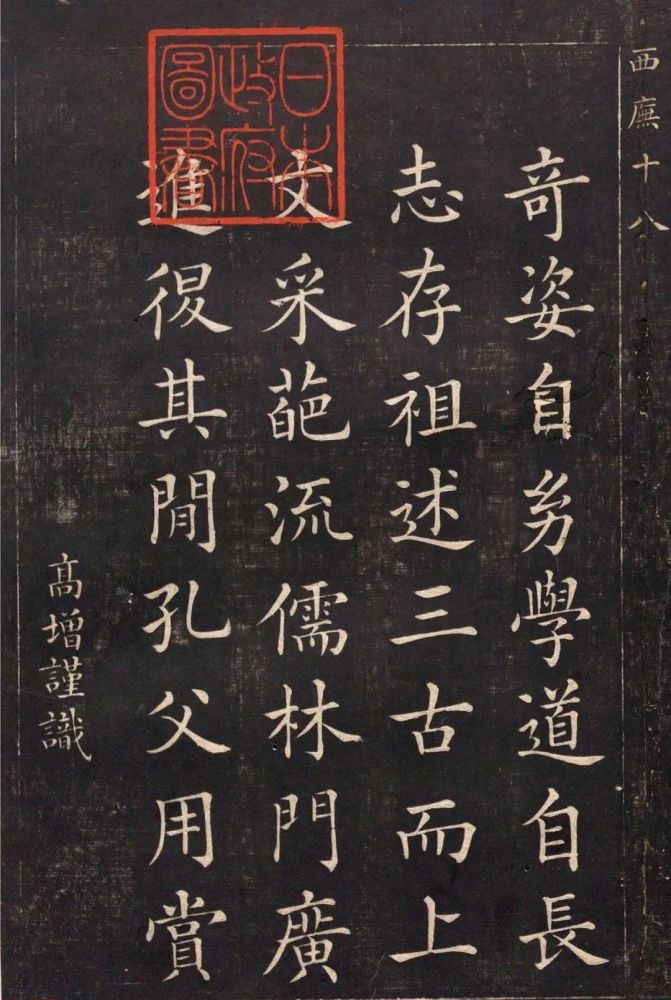 西廡十八
竒姿自㓜學道自長
志存祖述三古而上
文采葩流儒林門廣
進退其閒孔父用賞
髙增謹識
日本
政府
圖書